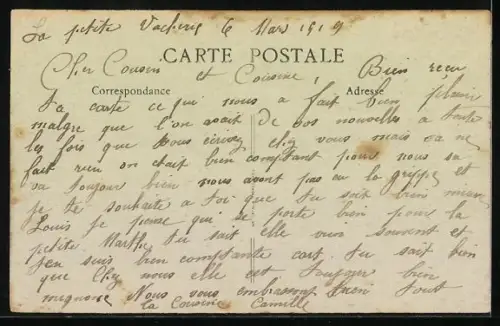 La petite Vacherie 6 Mars 1919
CARTE POSTALE
Cher Cousin et Cousine, Bien reçu
Correspondance Adresse
ta carte ce qui nous a fait bien plaisir
malgre que l'on avait de vos nouvelles a toute
les fois que vous écrivez chez vous mais sa ne
fait rien on était bien comptant pour nous sa
va toujour bien nous avont pas eu la grippe et
je te souhaite a toi que tu soit bien mieux
Louis je pense qui se porte bien pour la
petite Marthe tu sait elle vien souvent et
j'en suis bien comptante cart tu sait bien
que chez nous elle est toujour bien
mignonne Nous vous embrassons bien tout
la Cousine Camille